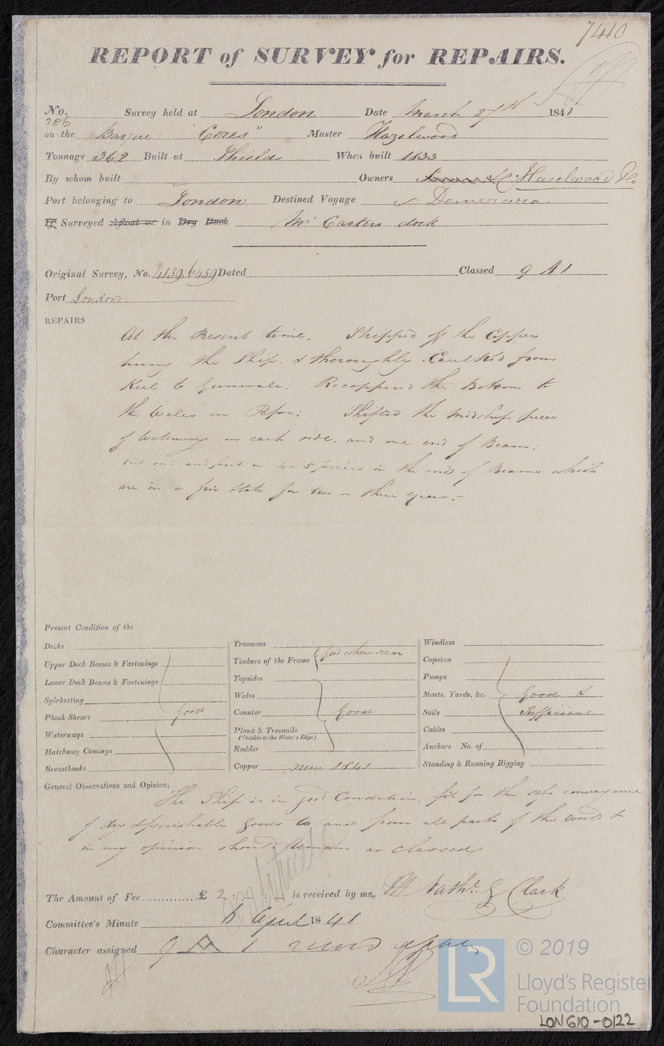 7410
REPORT of SURVEY for REPAIRS.
No. 286 Survey held at London Date March 27th 1841
on the Barque "Corus" Master Hazelwood
Tonnage 362 Built at Shields When built 1833
By whom built Owners Haselwood & Co
Port belonging to London Destined Voyage Demerara
If Surveyed Afloat or in Dry Dock Mr Carters dock
Original Survey, No. 4139/6459 Dated Classed 9 A1
Port London
REPAIRS
At the Present time. Stripped off the Copper
hung the Ship & thoroughly Caulked from
Keel to Gunwale: Recoppered the Bottom to
the Wales on Paper: Shifted the midship piece
of Waterways on each side, and one end of Beam:
cut out and put in 4 or 5 pieces in the ends of Beams which
are in a fair State for two or three years.
Present Condition of the
Decks
Upper Deck Beams & Fastenings
Lower Deck Beams & Fastenings
Spirketting
Plank Shears good
Waterways
Hatchway Comings
Breasthooks
Transoms
Timbers of the Frame fair when seen
Topsides
Wales
Counter Good
Plank & Treenails
(Outside to the Water's Edge)
Rudder
Copper new 1841
Windlass
Capstan
Pumps
Masts, Yards, &c. Good &
Sails Sufficient
Cables
Anchors No. of
Standing & Running Rigging
General Observations and Opinion,
The Ship is in good Condition, fit for the safe conveyance
of dry & perishable goods to and from all parts of the world &
in my opinion should remain as classed
The Amount of Fee £ 2 is received by me, Nathl. G Clark
Committee's Minute 6 April 1841
Character assigned 9 A 1
© 2019
LR
Lloyd's Register
Foundation
LON610-0122